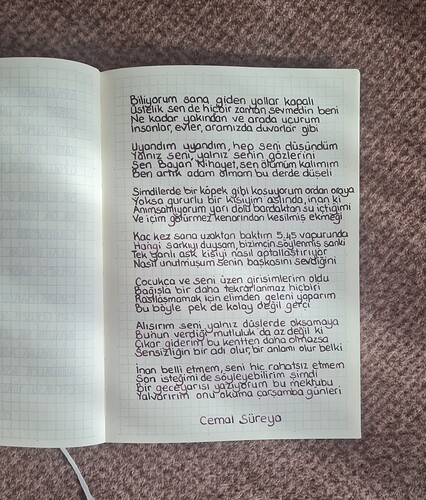 Biliyorum sana giden yollar kapalı
Üstelik sen de hiçbir zaman sevmedin beni
Ne kadar yakından ve arada uçurum
İnsanlar, evler, aramızda duvarlar gibi

Uyandım uyandım, hep seni düşündüm
Yalnız seni, yalnız senin gözlerini
Sen Bayan Nihayet, sen ölümüm kalımım
Ben artık adam olmam bu derde düşeli

Şimdilerde bir köpek gibi koşuyorum ordan oraya
Yoksa gururlu bir kişiyim aslında, inan ki
Anımsamıyorum yarı dolu bardaktan su içtiğimi
Ve içim götürmez kenarından kesilmiş ekmeği

Kaç kez sana uzaktan baktım 5.45 vapurunda
Hangi şarkıyı duysam, bizimçin söylenmiş sanki
Tek yanlı aşk kişiyi nasıl aptallaştırıyor
Nasıl unutmuşum senin başkasını sevdiğini

Çocukça ve seni üzen girişimlerim oldu
Bağışla bir daha tekrarlanmaz hiçbiri
Rastlaşmamak için elimden geleni yaparım
Bu böyle pek de kolay değil gerçi

Alışırım seni yalnız düşlerde okşamaya
Bunun verdiği mutluluk da az değil ki
Çıkar giderim bu kentten daha olmazsa
Sensizliğin bir adı olur, bir anlamı olur belki

İnan belli etmem, seni hiç rahatsız etmem
Son isteğimi de söyleyebilirim şimdi
Bir geceyarısı yazıyorum bu mektubu
Yalvarırım onu okuma çarşamba günleri

Cemal Süreya